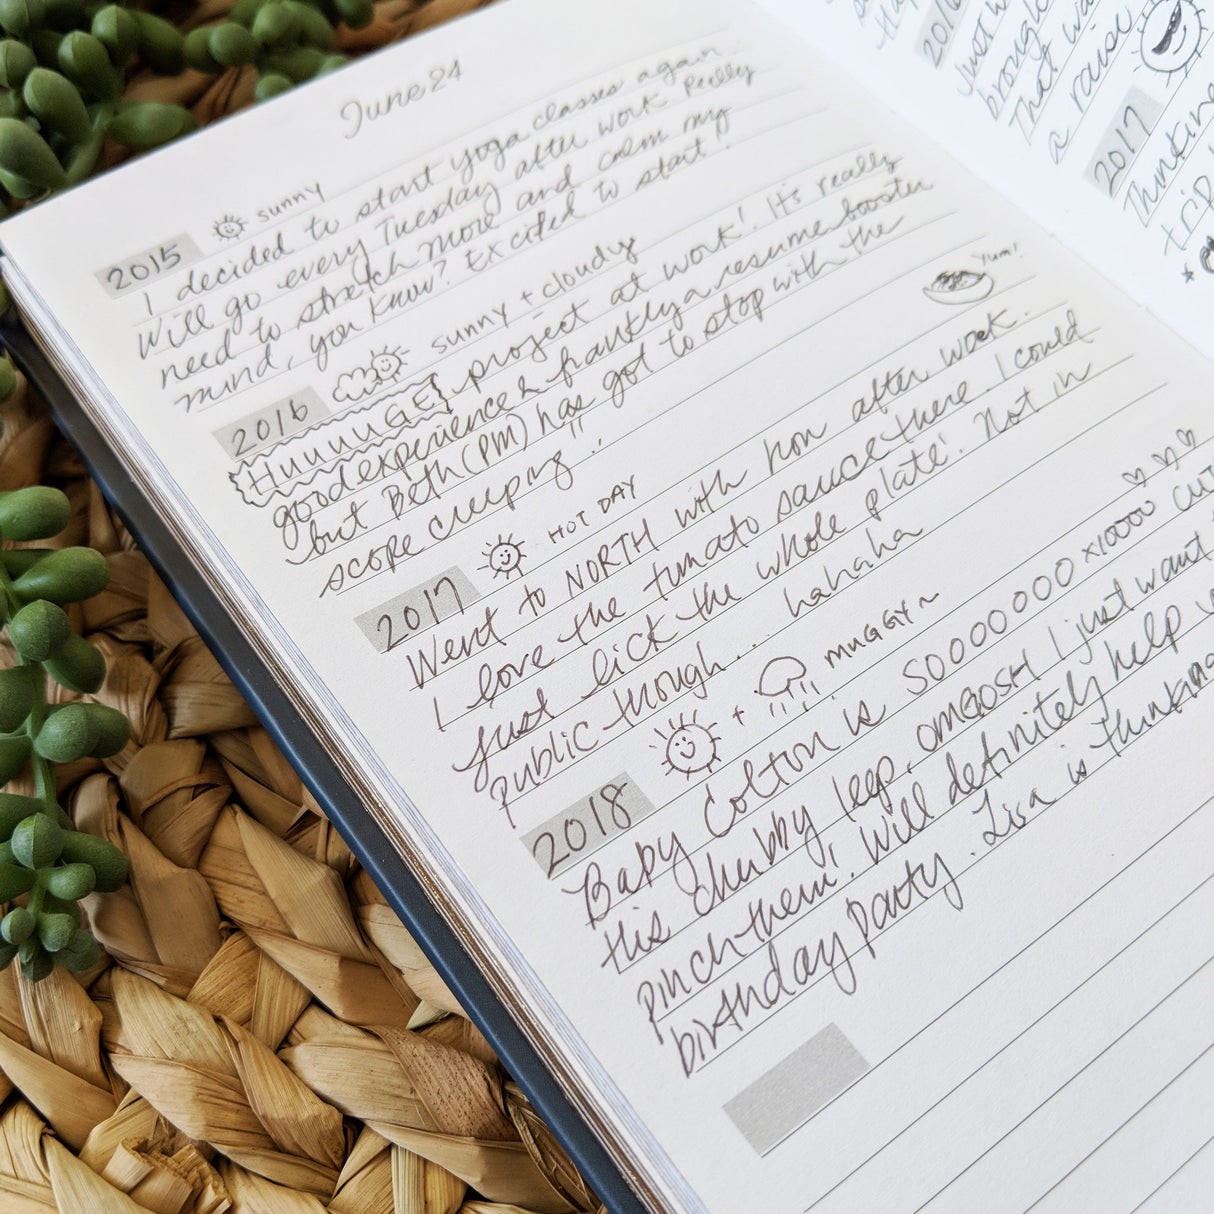 June 24
2015 sunny
I decided to start yoga classes again
Will go every Tuesday after work. Really
need to stretch more and calm my
mind, you know? Excited to start!
2016 sunny + cloudy
HUUUUGE project at work! It's really
good experience & frankly a resume booster
but Beth (PM) has got to stop with the
scope creeping!!
Yum!
2017 HOT DAY
Went to NORTH with hon after work.
I love the tomato sauce there. I could
just lick the whole plate! Not in
public though... hahaha
2018 + MUGGY~
Baby Colton is SOOOOOOOO x10000
His chubby legs, OMGOSH I just want
pinch them! Will definitely help
birthday party. Lisa is thinking
2016
Just
brought
That
a raise
2017
Thinking
trip